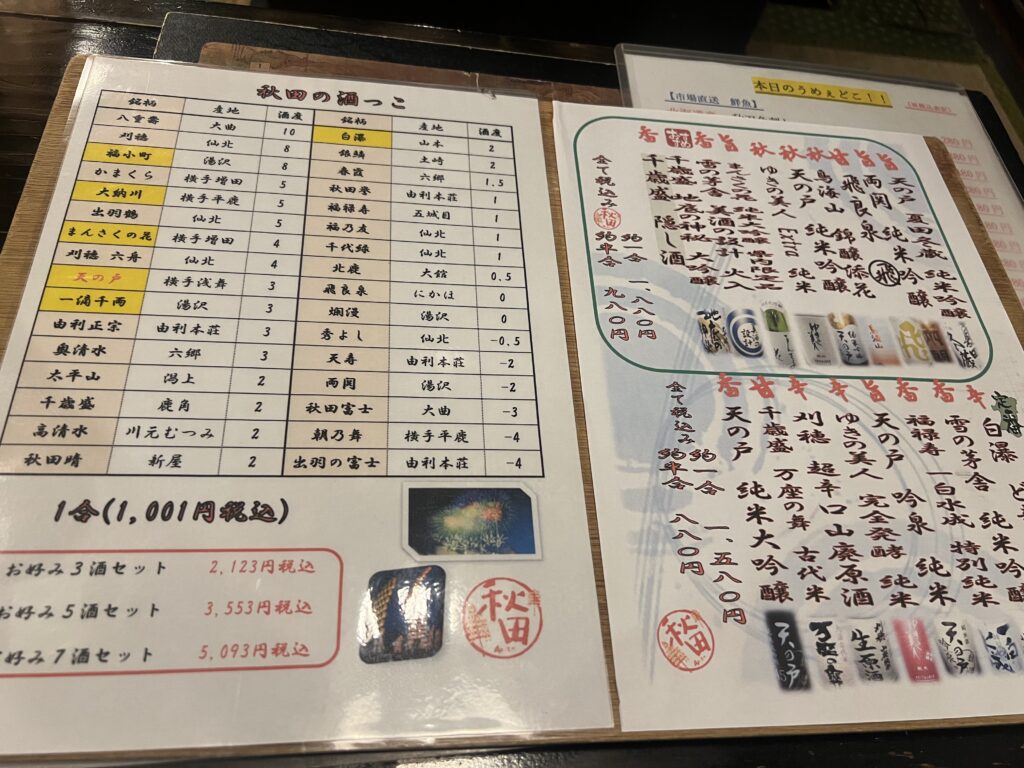 秋田の酒っこ
銘柄 産地 酒度 銘柄 産地 酒度
八重壽 大曲 10 白瀑 山本 2
刈穂 仙北 8 銀鱗 土崎 2
福小町 湯沢 8 春霞 六郷 1.5
かまくら 横手増田 5 秋田誉 由利本荘 1
大納川 横手平鹿 5 福禄寿 五城目 1
出羽鶴 仙北 5 福乃友 仙北 1
まんさくの花 横手増田 4 千代緑 仙北 1
刈穂 六舟 仙北 4 北鹿 大館 0.5
天の戸 横手浅舞 3 飛良泉 にかほ 0
一滴千両 湯沢 3 爛漫 湯沢 0
由利正宗 由利本荘 3 秀よし 仙北 -0.5
奥清水 六郷 3 天寿 由利本荘 -2
太平山 潟上 2 両関 湯沢 -2
千歳盛 鹿角 2 秋田富士 大曲 -3
高清水 川元むつみ 2 朝乃舞 横手平鹿 -4
秋田晴 新屋 2 出羽の富士 由利本荘 -4
1合(1,001円税込)
お好み3酒セット 2,123円税込
お好み5酒セット 3,553円税込
お好み7酒セット 5,093円税込
秋田
本日のうめぇどこ!!
【市場直送 鮮魚】
旨 天の戸 夏田冬蔵 純米吟醸
旨 両関 純米吟醸
甘 飛良泉 飛
秋 鳥海山 錦醸添花
秋 天の戸 純米吟醸
秋 ゆきの美人 Extra 純米
旨 まんさくの花
香 雪の茅舎 美酒の設計 火入
千歳盛 地底の神秘 大吟醸
香 千歳盛 隠し酒
全て税込み 約一合 一、八八〇円
約半合 九八〇円
秋田
辛 白瀑 ど辛 純米吟
香 雪の茅舎
香 福禄寿 一白水成 特別純米
香 天の戸 吟泉 純米
旨 ゆきの美人 完全発酵 純米
辛 刈穂 超辛口 山廃原酒
辛 千歳盛 万座の舞
甘 古代米
香 天の戸 純米大吟醸
全て税込み 約一合 一、五八〇円
約半合 八八〇円
天の戸
生原酒
秋田